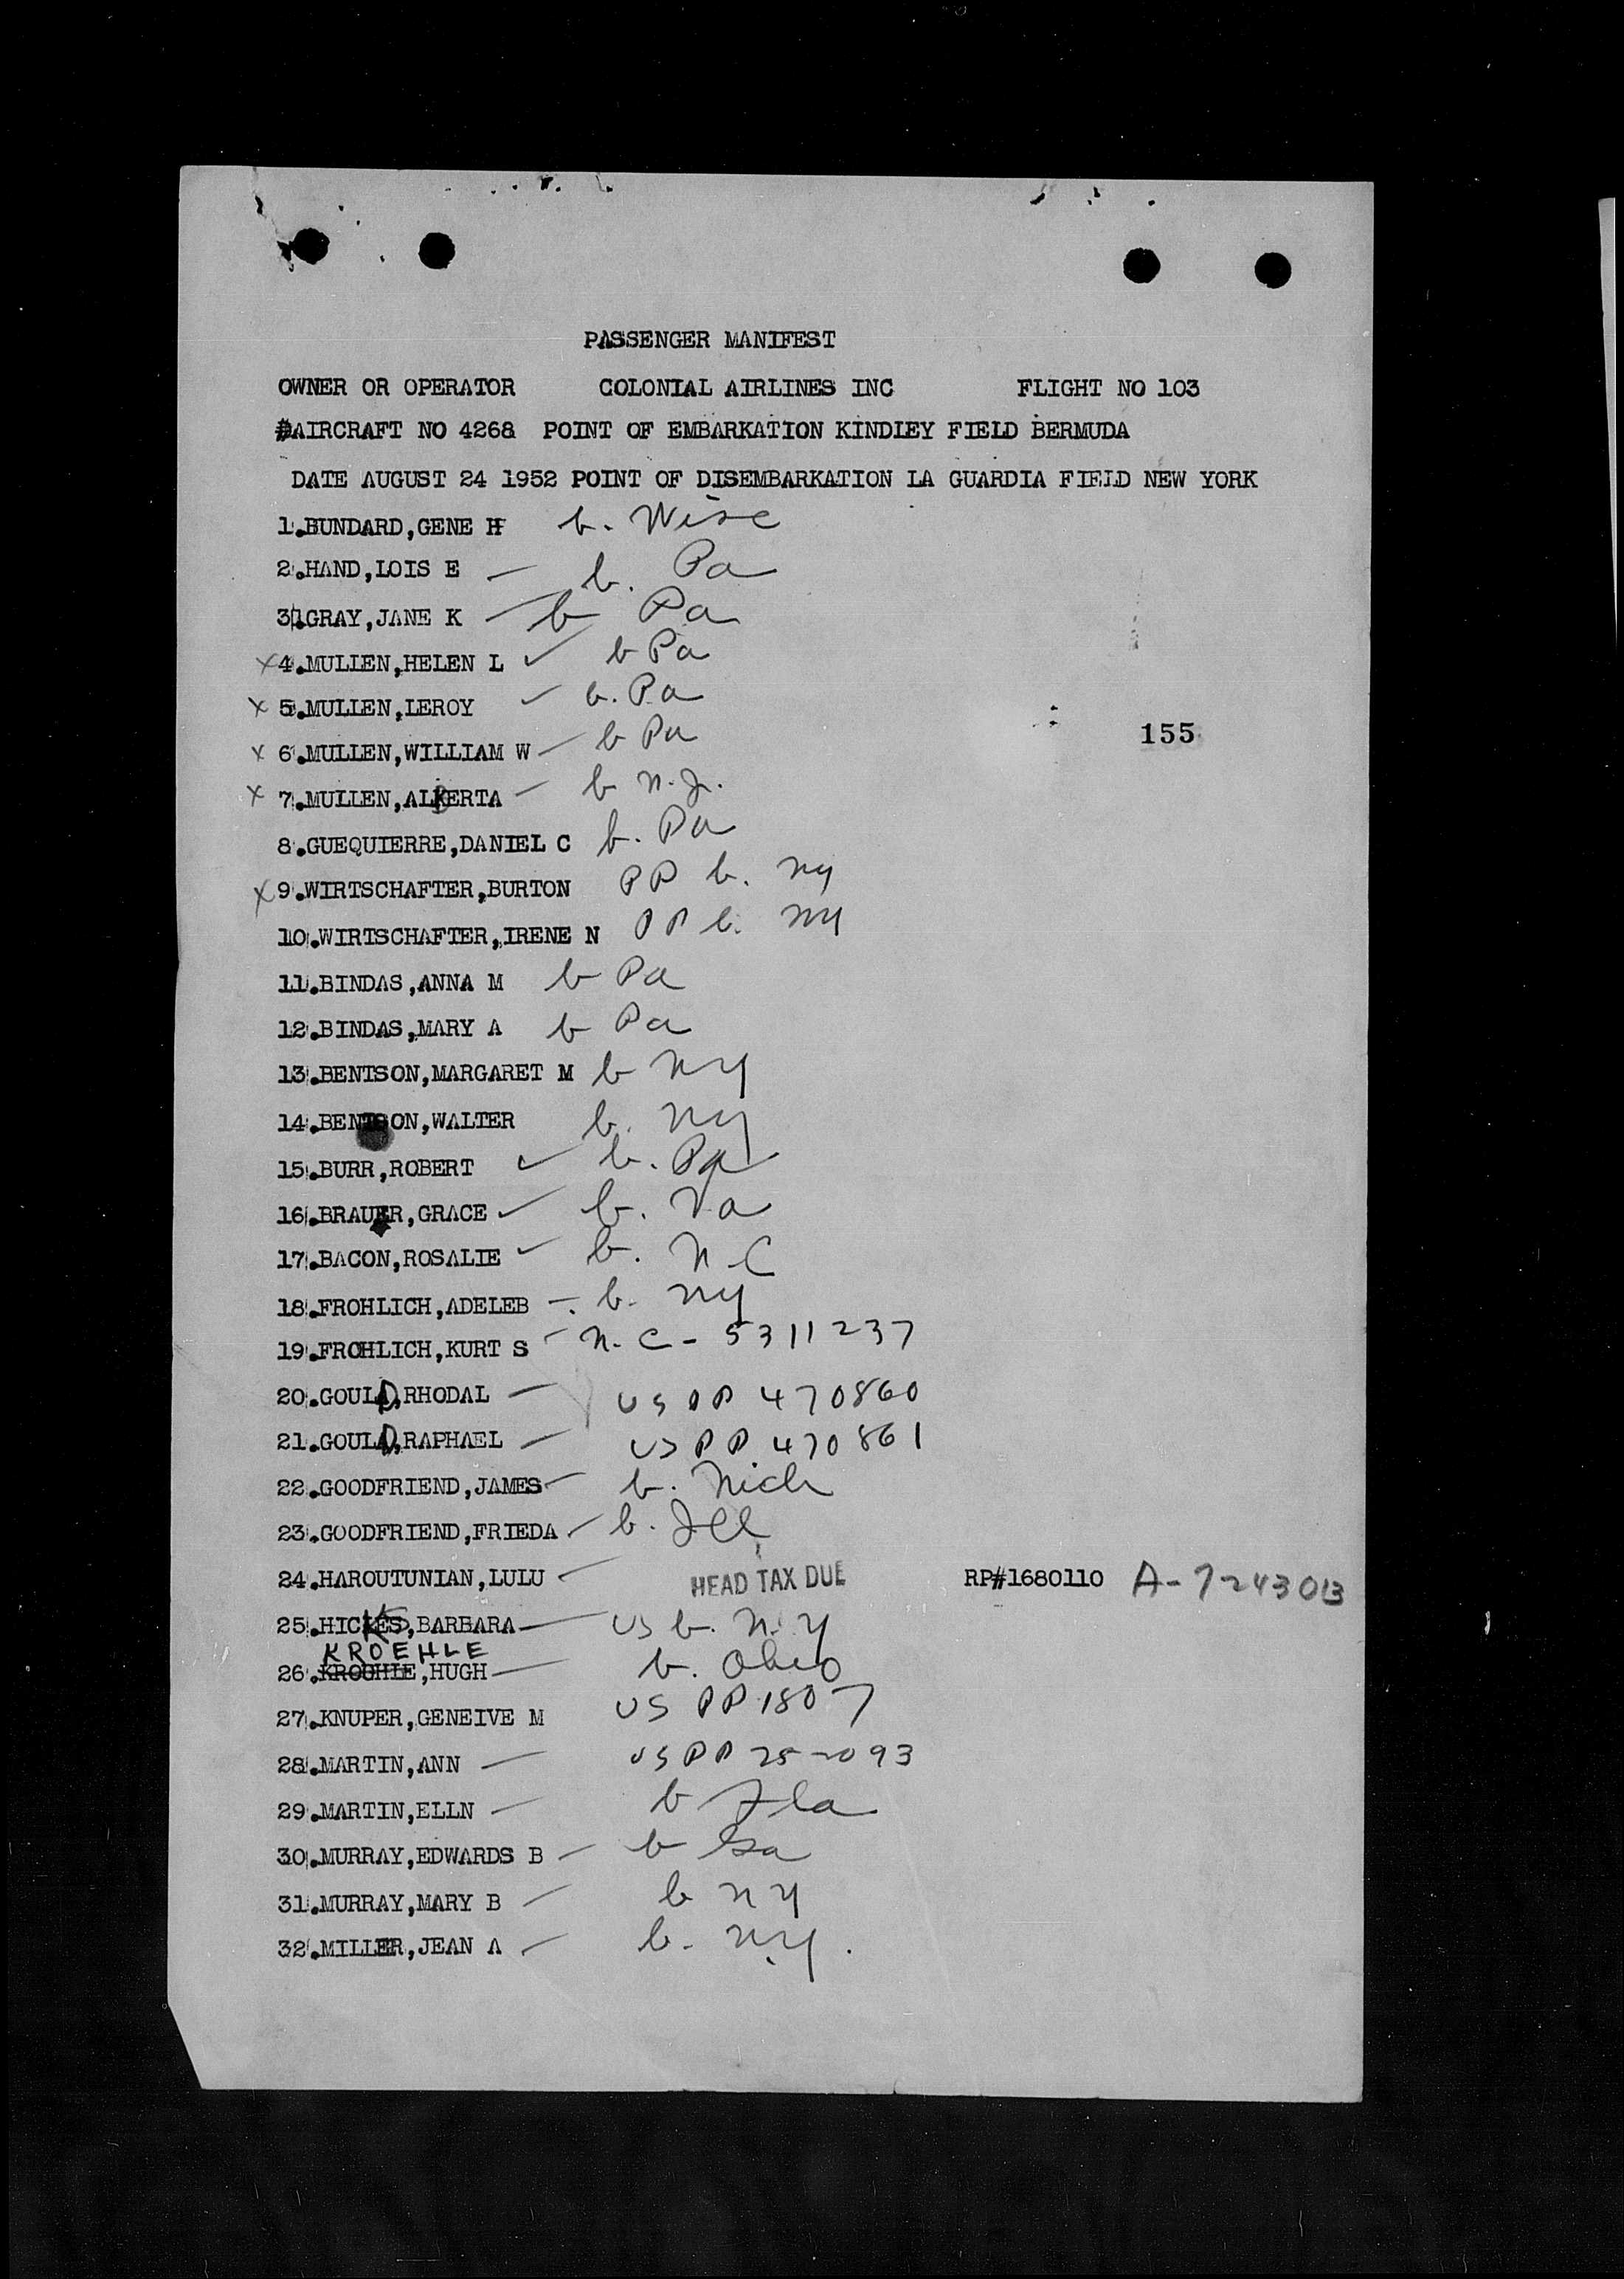 PASSENGER MANIFEST
OWNER OR OPERATOR COLONIAL AIRLINES INC FLIGHT NO 103
AIRCRAFT NO 4268 POINT OF EMBARKATION KINDLEY FIELD BERMUDA
DATE AUGUST 24 1952 POINT OF DISEMBARKATION LA GUARDIA FIELD NEW YORK
1.BUNDARD,GENE H b. Wisc
2.HAND,LOIS E — b. Pa
3.GRAY,JANE K — b Pa
x 4.MULLEN,HELEN L ✓ b Pa
x 5.MULLEN,LEROY ✓ b. Pa
155
x 6.MULLEN,WILLIAM W — b Pa
x 7.MULLEN,ALBERTA — b N.J.
8.GUEQUIERRE,DANIEL C b. Pa
x 9.WIRTSCHAFTER,BURTON PP b. NY
10.WIRTSCHAFTER,IRENE N PP b. NY
11.BINDAS,ANNA M b Pa
12.BINDAS,MARY A b Pa
13.BENTSON,MARGARET M b NY
14.BENTSON,WALTER b. NY
15.BURR,ROBERT ✓ b. Pa
16.BRAUER,GRACE ✓ b. Va
17.BACON,ROSALIE ✓ b. N C
18.FROHLICH,ADELEB — b. NY
19.FROHLICH,KURT S — N. C - 5311237
20.GOULD,RHODAL — US PP 470860
21.GOULD,RAPHAEL — US PP 470861
22.GOODFRIEND,JAMES — b. Mich
23.GOODFRIEND,FRIEDA — b. Ill
24.HAROUTUNIAN,LULU — HEAD TAX DUE RP#1680110 A-7243013
25.HICKS,BARBARA — US b. N.Y
KROEHLE
26.KROUHIE,HUGH — b. Ohio
27.KNUPER,GENEIVE M US PP 1807
28.MARTIN,ANN — US PP 252093
29.MARTIN,ELLN — b Fla
30.MURRAY,EDWARDS B — b Ga
31.MURRAY,MARY B — b NY
32.MILLER,JEAN A — b. N.Y.